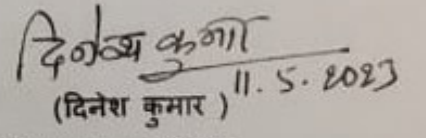 दिनेश कुमार
11.5.2023
(दिनेश कुमार)